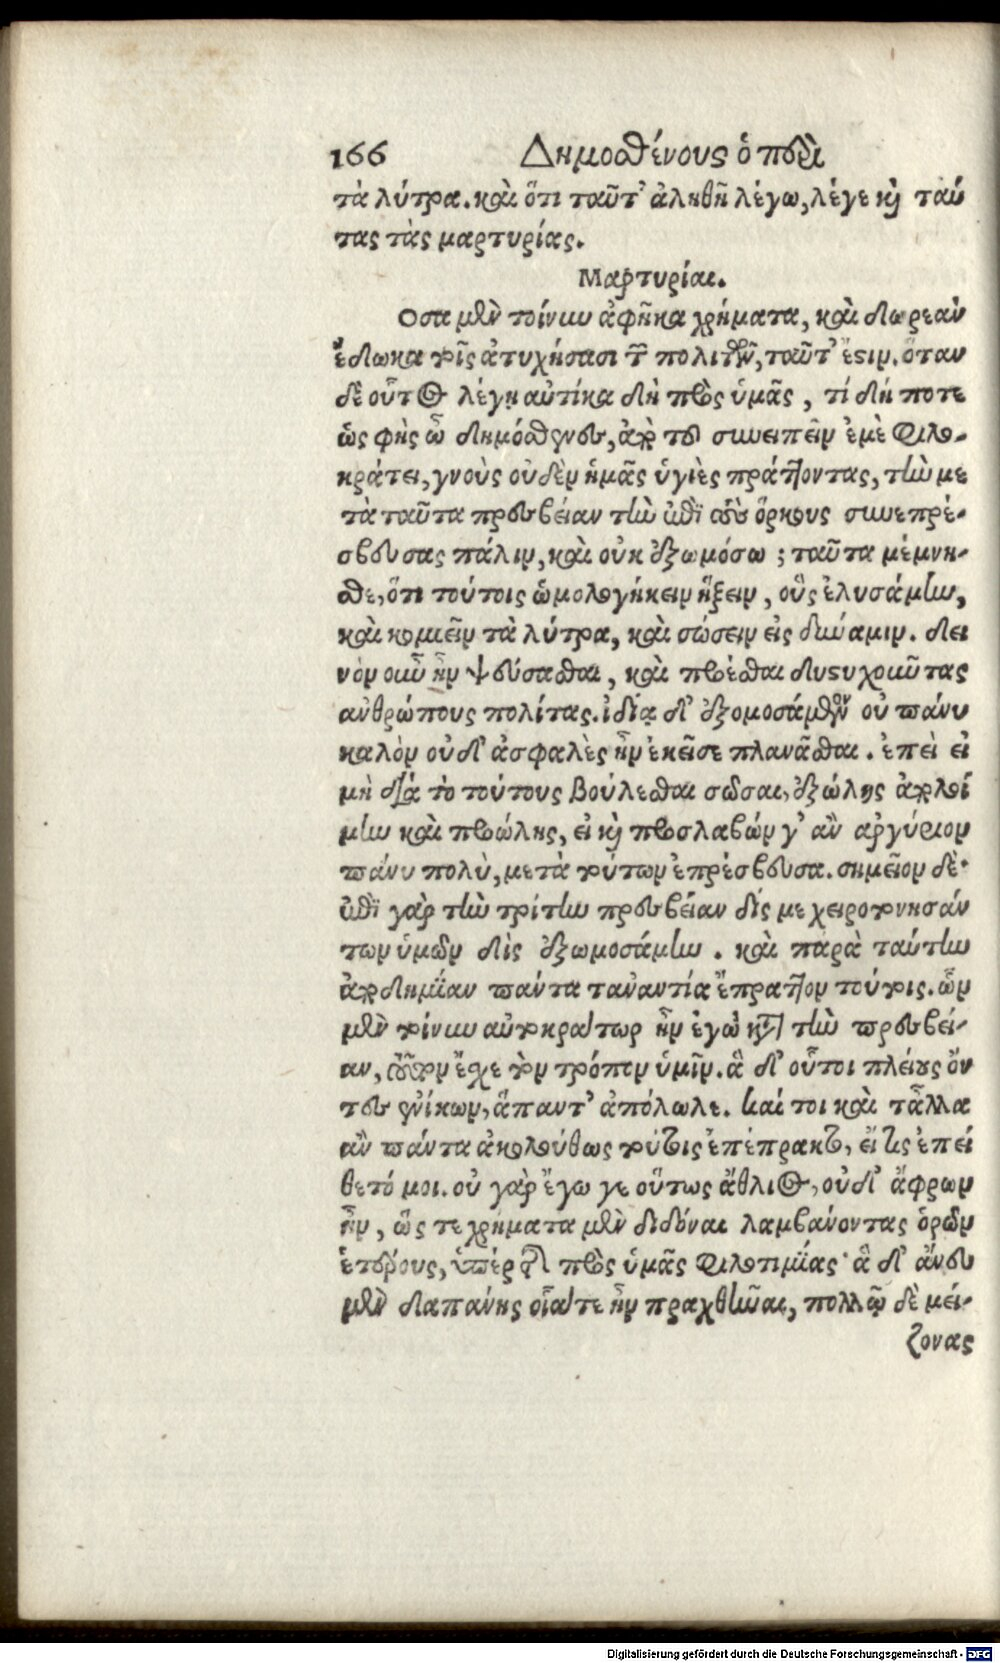 166 Δημοσθένους ὁ περὶ
τὰ λύτρα. καὶ ὅτι ταῦτ᾽ ἀληθῆ λέγω, λέγε καὶ ταύ
τας τὰς μαρτυρίας.
Μαρτυρίαι.
Οσα μὲν τοίνυν ἀφῆκα χρήματα, καὶ δωρεὰν
ἔδωκα τοῖς ἀτυχήσασι τῶν πολιτῶν, ταῦτ᾽ ἔστιν. ὅταν
δὲ οὗτος λέγῃ αὐτίκα δὴ πρὸς ὑμᾶς, τί δή ποτε
ὡς φὴς ὦ δημόσθενες, ἀπὸ τοῦ συνειπεῖν ἐμὲ Φιλο-
κράτει, γνοὺς οὐδὲν ἡμᾶς ὑγιὲς πράττοντας, τὴν με
τὰ ταῦτα πρεσβείαν τὴν ἐπὶ τοὺς ὅρκους συνεπρέ-
σβευσας πάλιν, καὶ οὐκ ἐξωμόσω; ταῦτα μέμνη-
σθε, ὅτι τούτοις ὡμολογήκειν ἥξειν, οὓς ἐλυσάμην,
καὶ κομιεῖν τὰ λύτρα, καὶ σώσειν εἰς δύναμιν. δει
νὸν οὖν ἦν ψεύσασθαι, καὶ προέσθαι δυστυχοῦντας
ανθρώπους πολίτας. ἰδίᾳ δ᾽ ἐξομοσάμενον οὐ πάνυ
καλὸν οὐδ᾽ ἀσφαλὲς ἦν ἐκεῖσε πλανᾶσθαι. ἐπεὶ εἰ
μὴ διὰ τὸ τούτους βούλεσθαι σῶσαι, ἐξώλης ἀπολοί
μην καὶ προώλης, εἰ καὶ προσλαβών γ᾽ ἂν ἀργύριον
πάνυ πολὺ, μετὰ τούτων ἐπρέσβευσα. σημεῖον δέ·
ἐπὶ γὰρ τὴν τρίτην πρεσβείαν δίς με χειροτονησάν
των ὑμῶν δὶς ἐξωμοσάμην. καὶ παρὰ ταύτην
ἀποδημΐαν πάντα τἀναντία ἔπραττον τούτοις. ὧν
μὲν τοίνυν αὐτοκράτωρ ἦν ἐγὼ κατὰ τὴν πρεσβεί-
αν, τοῦτον ἔχε τὸν τρόπον ὑμῖν. ἃ δ᾽ οὗτοι πλείους ὄν
τες ἐνίκων, ἅπαντ᾽ ἀπόλωλε. καί τοι καὶ τἆλλα
ἂν πάντα ἀκολούθως τούτοις ἐπέπρακτο, εἴ τις ἐπεί
θετό μοι. οὐ γὰρ ἔγω γε οὕτως ἄθλιος, οὐδ᾽ ἄφρων
ἦν, ὥς τε χρήματα μὲν διδόναι λαμβάνοντας ὁρῶν
ἑτέρους, ὑπὲρ τῆς πρὸς ὑμᾶς φιλοτιμΐας· ἃ δ᾽ ἄνευ
μὲν δαπάνης οἷά τε ἦν πραχθῆναι, πολλῷ δὲ μεί-
ζονας
Digitalisierung gefördert durch die Deutsche Forschungsgemeinschaft - DFG